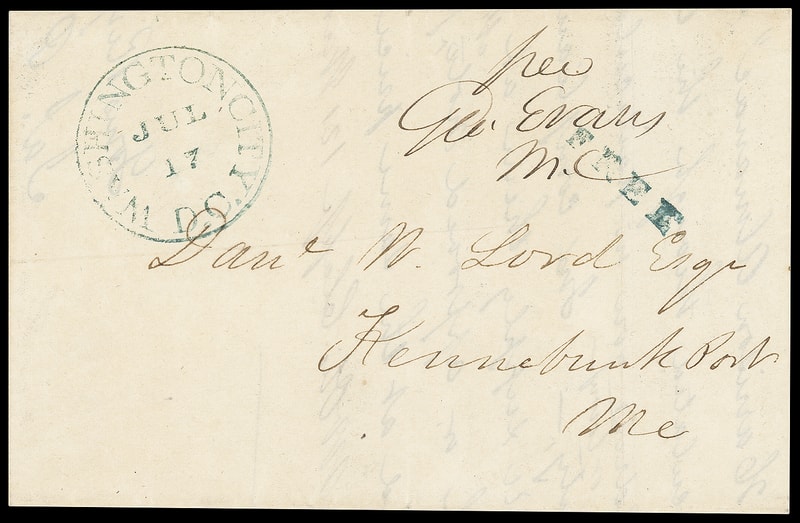 WASHINGTON CITY. D.C.
JUL
17
free
Geo. Evans
M.C
FREE
Danl W. Lord Esqr
Kennebunk Port
Me